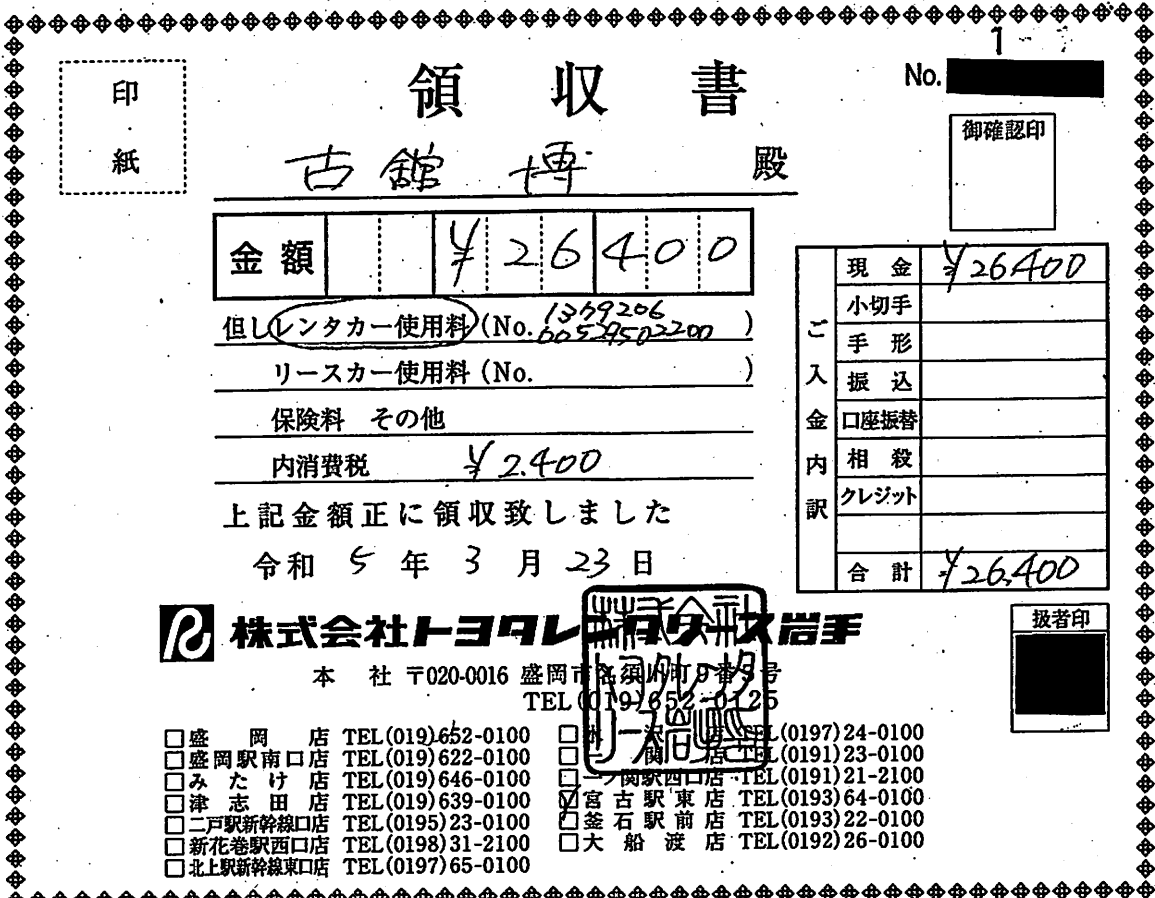 1
領収書
No.
印紙
御確認印
古舘 博 殿
金額 ¥26400
但しレンタカー使用料 (No. 1379206 00529502200 )
リースカー使用料 (No. )
保険料 その他
内消費税 ¥2.400
上記金額正に領収致しました
令和 5 年 3 月 23 日
ご入金内訳
現金 ¥26400
小切手
手形
振込
口座振替
相殺
クレジット
合計 ¥26,400
扱者印
株式会社トヨタレンタリース岩手
本社 〒020-0016 盛岡市名須川町9番5号
TEL(019)652-0125
□盛岡店 TEL(019)652-0100
□盛岡駅南口店 TEL(019)622-0100
□みたけ店 TEL(019)646-0100
□津志田店 TEL(019)639-0100
□二戸駅新幹線口店 TEL(0195)23-0100
□新花巻駅西口店 TEL(0198)31-2100
□北上駅新幹線東口店 TEL(0197)65-0100
□水沢店 TEL(0197)24-0100
□一関店 TEL(0191)23-0100
□一ノ関駅西口店 TEL(0191)21-2100
☑宮古駅東店 TEL(0193)64-0100
□釜石駅前店 TEL(0193)22-0100
□大船渡店 TEL(0192)26-0100